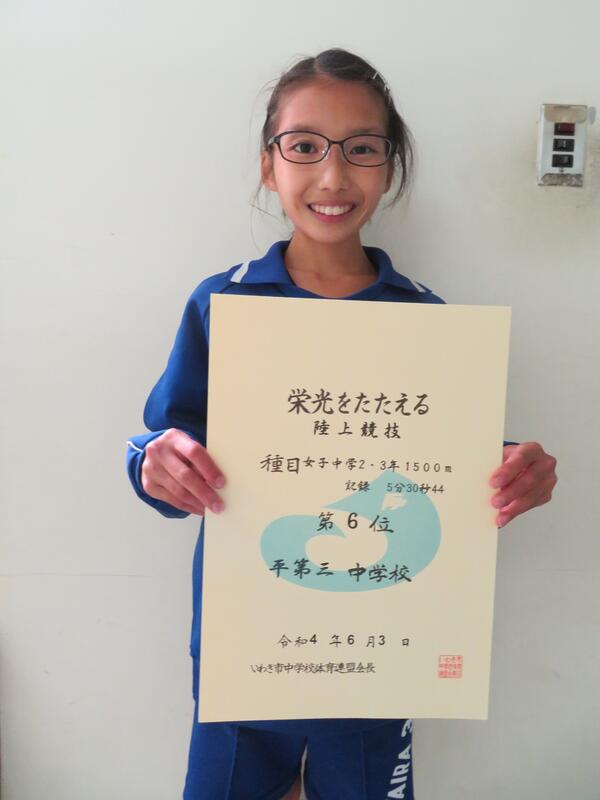 栄光をたたえる
陸上競技
種目 女子中学2・3年1500m
記録 5分30秒44
第 6 位
平第三 中学校
令和4 年 6 月 3 日
いわき市中学校体育連盟会長
AIRA 3